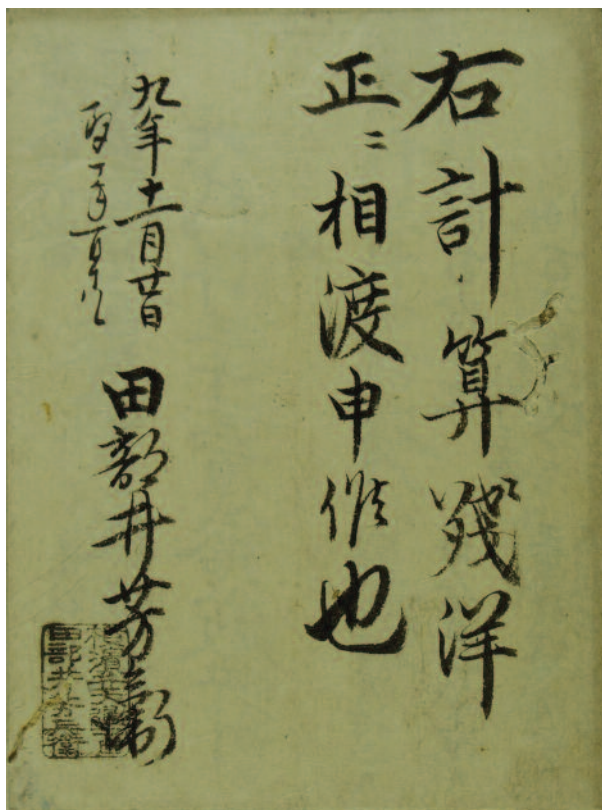 右計算残洋
正ニ相渡申候也
九年十一月廿日
田部井芳兵衛
田部井芳兵衛